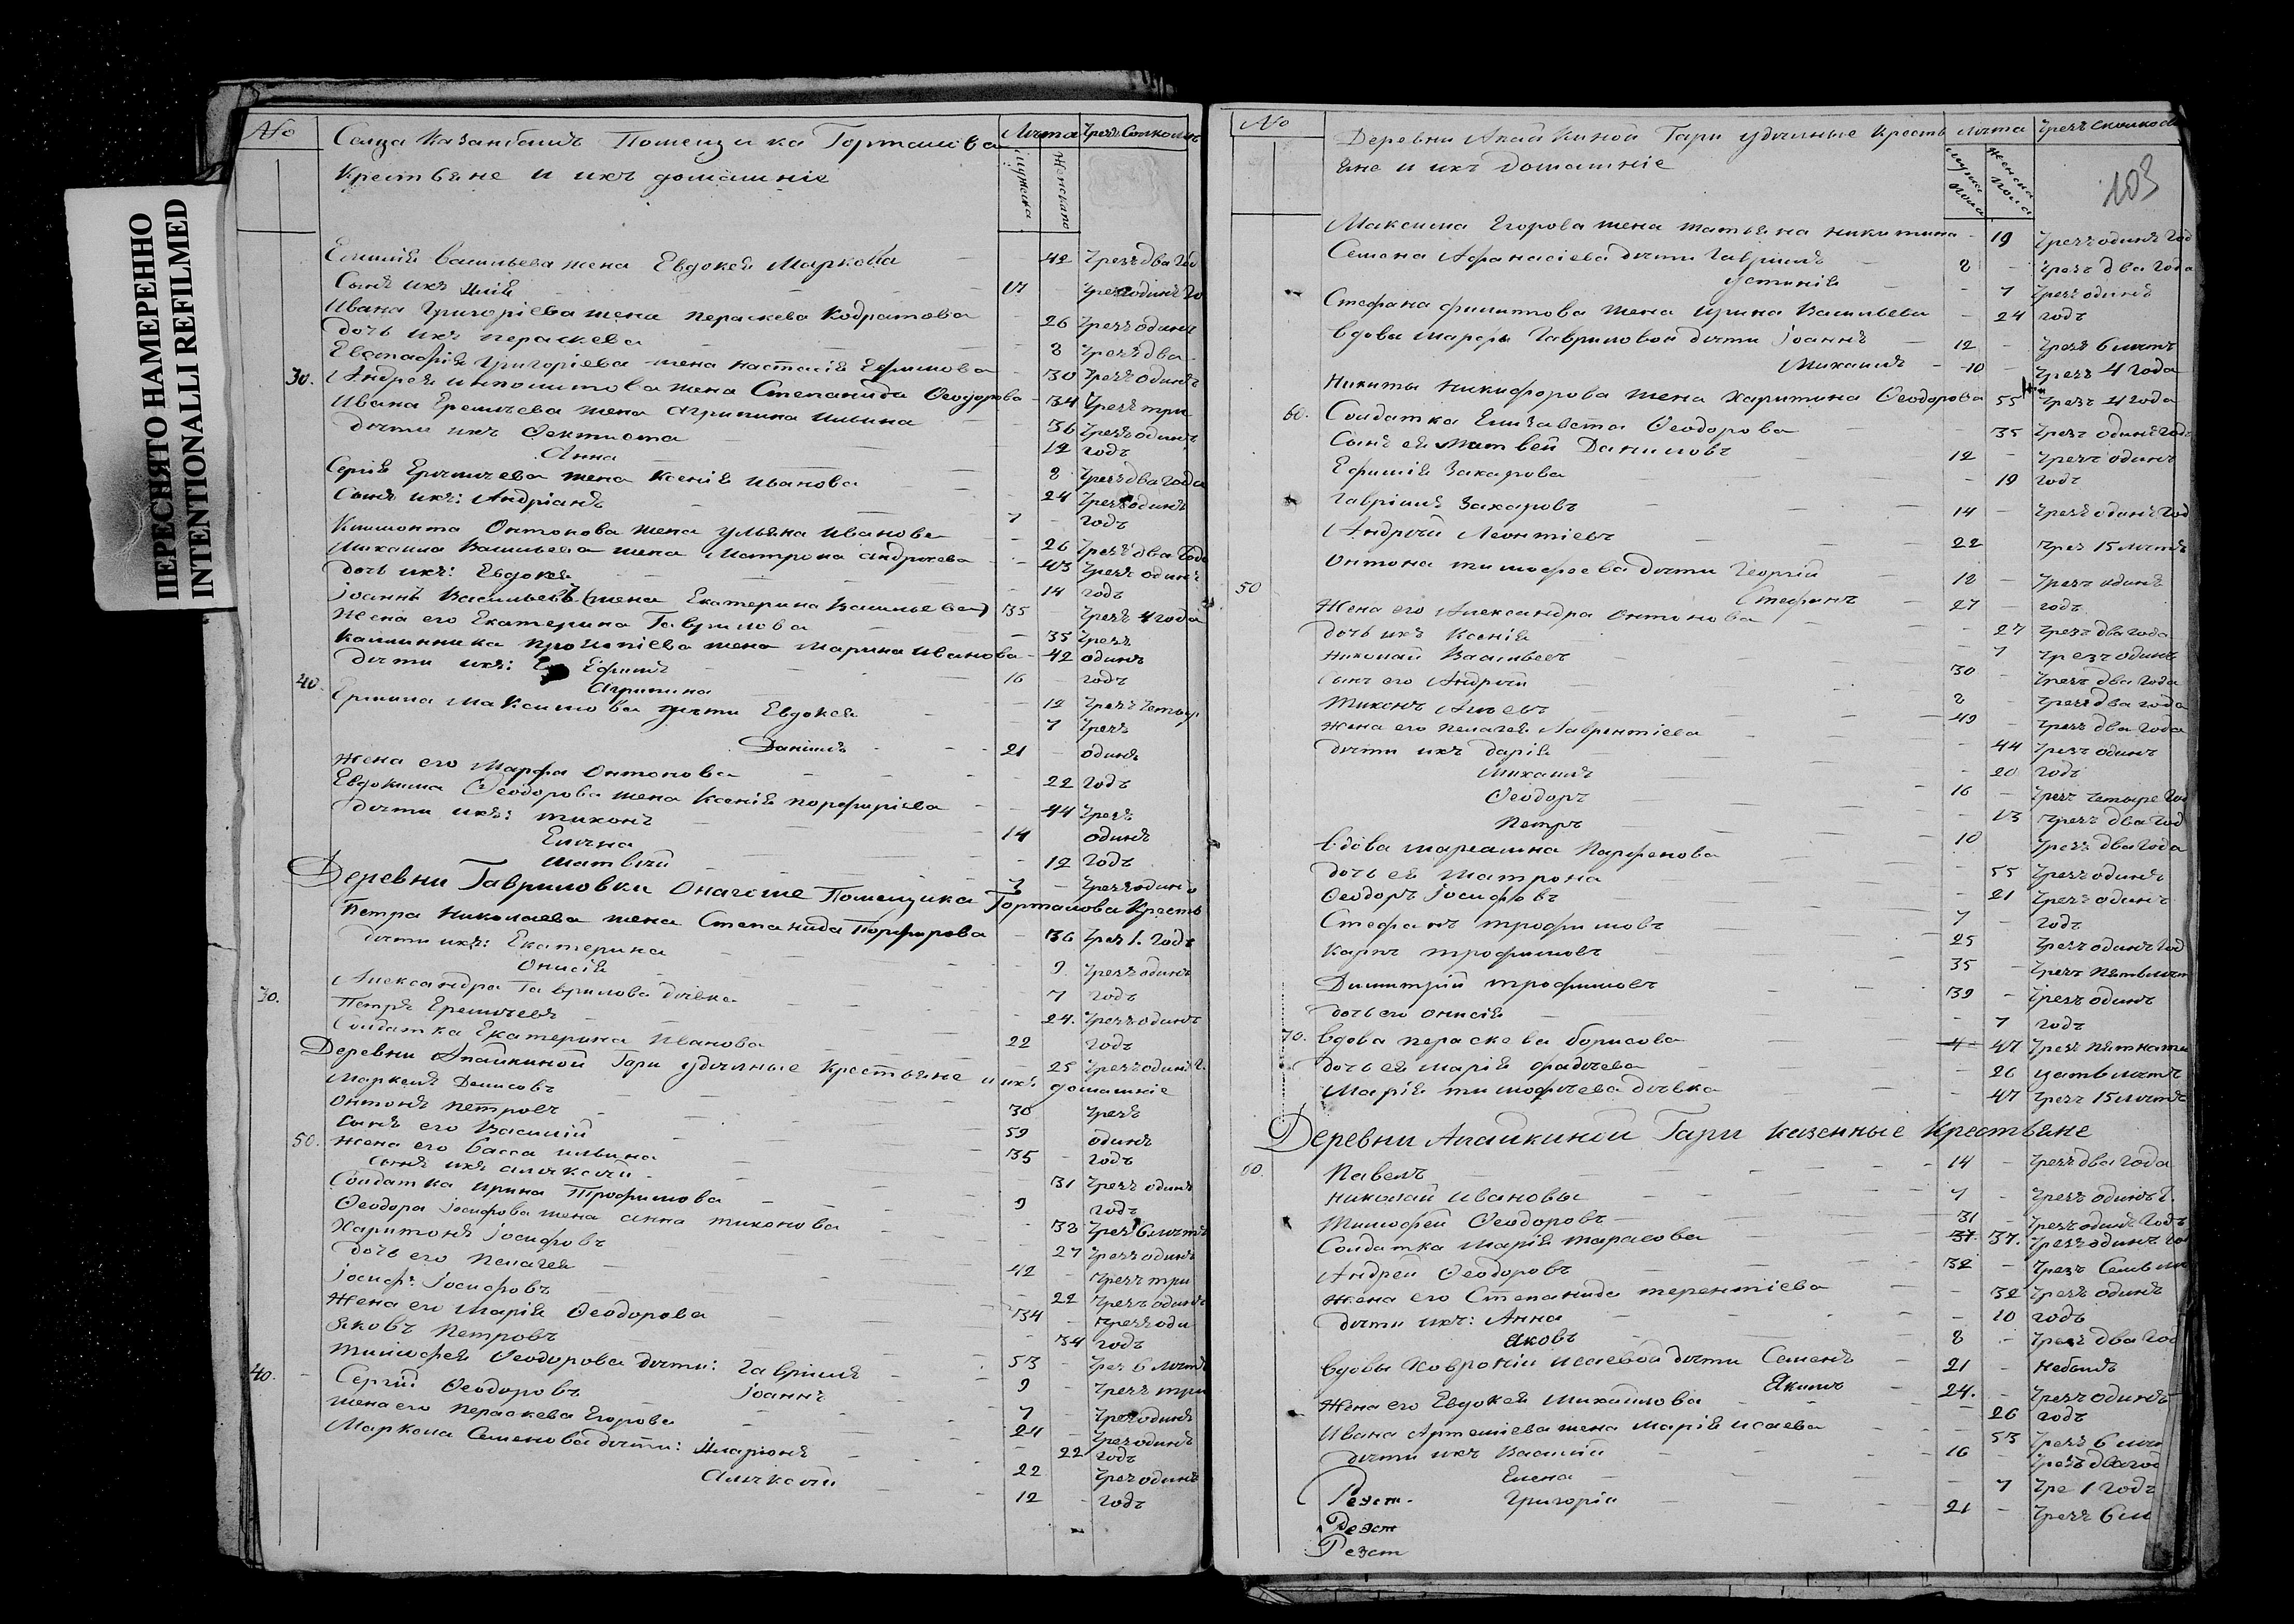 ПЕРЕСНЯТО НАМЕРЕННО
INTENTIONALLI REFILMED
№
Сельца Казанбашъ Помещика Горталова
Крестьяне и ихъ домашніе
Лѣта
Мужска
Женскаго
Чрезъ Сколко лѣтъ
Васильева жена Евдокея Маркова - 42 Чрезъ два год
Сынъ ихъ Илія - 17 Чрезъ одинъ го
Ивана Григоріева жена Пераскева Кодратова - 26 Чрезъ одинъ
дочь ихъ Пераскева - 8 Чрезъ два
Евстафія Григоріева жена Настасія Ефимова - 30 Чрезъ одинъ
30. Андрея Ипполитова жена Степанида Ѳеодорова - 34 Чрезъ три
Ивана Еремѣева жена Агрипина Ильина - 36 Чрезъ одинъ
дѣти ихъ Ѳектиста - 12 годъ
Анна - 8 Чрезъ два года
Сергія Еремѣева жена Ксенія Иванова - 24 Чрезъ одинъ
Сынъ ихъ: Андріанъ 7 - годъ
Климонта Онтонова жена Ульяна Иванова - 26 Чрезъ два года
Михаила Васильева жена Матрона Андреева - 43 Чрезъ одинъ
дочь ихъ: Евдокея - 14 годъ
Іоаннъ Васильевъ (жена Екатерина Васильева) 35 Чрезъ 4 года
Жена его Екатерина Гаврилова - 35 Чрезъ
Каллиника Прокопіева жена Марина Иванова - 42 одинъ
дѣти ихъ: Ефимъ 16 - годъ
40. Агрипина - 12 Чрезъ четыр
Ермила Максимова дѣти Евдокея - 7 Чрезъ
Даніилъ 21 - одинъ
Жена его Марфа Онтонова - 22 годъ
Евдокима Ѳеодорова жена Ксенія Порфиріева - 44 Чрезъ
дѣти ихъ: Тихонъ 14 одинъ
Елена - 12 годъ
Матвѣй 7 - Чрезъ одинъ
Деревни Гавриловки Онагоже Помещика Горталова Кресть
Петра Николаева жена Степанида Порфирова - 36 Чрез 1. годъ
дѣти ихъ: Екатерина - 9. Чрезъ одинъ
Онисія - 7 годъ
30. Александра Гаврилова дѣвка - 24. Чрезъ одинъ
Петръ Еремѣевъ 22 годъ
Солдатка Екатерина Иванова - 25 Чрезъ одинъ г.
Деревни Апайкиной Гари удѣлные Крестьяне и ихъ домашніе
Маркелъ Денисовъ 30 Чрезъ
Онтонъ Петровъ 59 одинъ
Сынъ его Василій 35 - годъ
50. Жена его Васса Ильина - 31 Чрезъ одинъ
Сынъ ихъ Алѣксѣй 9 годъ
Солдатка Ирина Трофимова - 38 Чрезъ 6 лѣтъ
Ѳеодора Іосифова жена Анна Тихонова - 27 Чрезъ одинъ
Харитонъ Іосифовъ 42 - Чрезъ три
Дочь его Пелагея - 22 Чрезъ одинъ
Іосифъ Іосифовъ 34 - Чрезъ оди
Жена его Марія Ѳеодорова - 34 годъ
Яковъ Петровъ 53 - Чрез 6 лѣтъ
Тимофея Ѳеодорова дѣти: Гавріилъ 9 - Чрезъ три
40. Іоаннъ 7 - Чрезъ одинъ
Сергій Ѳеодоровъ 24 - Чрезъ одинъ
Жена его Пераскева Егорова - 22 годъ
Маркела Семенова дѣти: Иларіонъ 22 Чрез одинъ
Алѣксѣй 12 - годъ
№
Деревни Апайкиной Гари удѣлные Кресть
яне и ихъ домашніе
лѣта
мужска пола
женска пола
Чрезъ сколко лѣ
103
Максима Егорова жена Татьяна Никитина - 19 Чрезъ одинъ год
Семена Афанасіева дѣти Гавріилъ 8 - Чрезъ два года
Устинія - 7 Чрезъ одинъ
Стефана Филитова жена Ирина Васильева - 24 годъ
вдовы Марфы Гавриловой дѣти Іоаннъ 12 - Чрезъ 6 лѣтъ
Михаилъ 10 - Чрезъ 4 года
Никиты Никифорова жена Харитина Ѳеодорова 55 Чрезъ 4 года
60. Солдатка Елизавета Ѳеодорова - 35 Чрезъ одинъ годъ
Сынъ ея Матвей Даниловъ 12 - Чрезъ одинъ
Ефимія Захарова - 19 годъ
Гавріилъ Захаровъ 14 - Чрезъ одинъ год
Андрѣй Леонтіевъ 22 Чрез 15 лѣтъ
Онтона Тимофеева дѣти Георгій 12 - Чрезъ одинъ
50 Стефанъ 27 - годъ
Жена его Александра Онтонова - 27 Чрезъ два года
дочь ихъ Ксенія - 7 Чрезъ одинъ
Николай Васильевъ 30 - Чрезъ два года
Сынъ его Андрѣй 8 - Чрезъ два года
Тихонъ 49 - Чрезъ два года
Жена его Пелагея Лаврентіева - 44 Чрезъ одинъ
дѣти ихъ Дарія - 20 годъ
Михаилъ 16 - Чрезъ четыре год
Ѳеодоръ - 13 Чрезъ два год
Петръ 10 Чрезъ два года
вдова Маріамна Парфенова - 55 Чрезъ одинъ
дочь ея Матрона - 21 Чрезъ одинъ
Ѳеодоръ Іосифовъ 7 - годъ
Стефанъ Трофимовъ 25 Чрезъ одинъ год
Карпъ Трофимовъ 35 - Чрезъ пять лѣт
Димитрій Трофимовъ 39 - Чрезъ одинъ
дочь его Онисія - 7 годъ
70. вдова Пераскева Борисова 47 Чрезъ пятнат
дочь ея Марія Фадѣева - 26 цать лѣтъ
Марія Тимофѣева дѣвка - 47 Чрезъ 15 лѣтъ
Деревни Апайкиной Гари казенные Крестьяне
60. Павелъ 14 - Чрезъ два года
Николай Ивановы 7 - Чрезъ одинъ г.
Тимофей Ѳеодоровъ 31 - Чрезъ одинъ годъ
Солдатка Марія Тарасова 37. 37. Чрезъ одинъ го
Андрей Ѳеодоровъ 32 - Чрезъ Семь лѣ
Жена его Степанида Терентіева - 32 Чрезъ одинъ
дѣти ихъ: Анна - 10 годъ
Яковъ 8 - Чрезъ два год
вдовы Хавроніи Исаевой дѣти Семенъ 21 - небылъ
Якимъ 24. - Чрезъ одинъ
Жена его Евдокея Михайлова - 26 годъ
Ивана Артеміева жена Марія Исаева - 53 Чрезъ 6 лѣт
дѣти ихъ Василій 16 Чрезъ два го
Елена - 7 Чре 1 годъ
Реэст. Григорій 21 - Чрезъ 6 лѣ
Реэст
Реэст